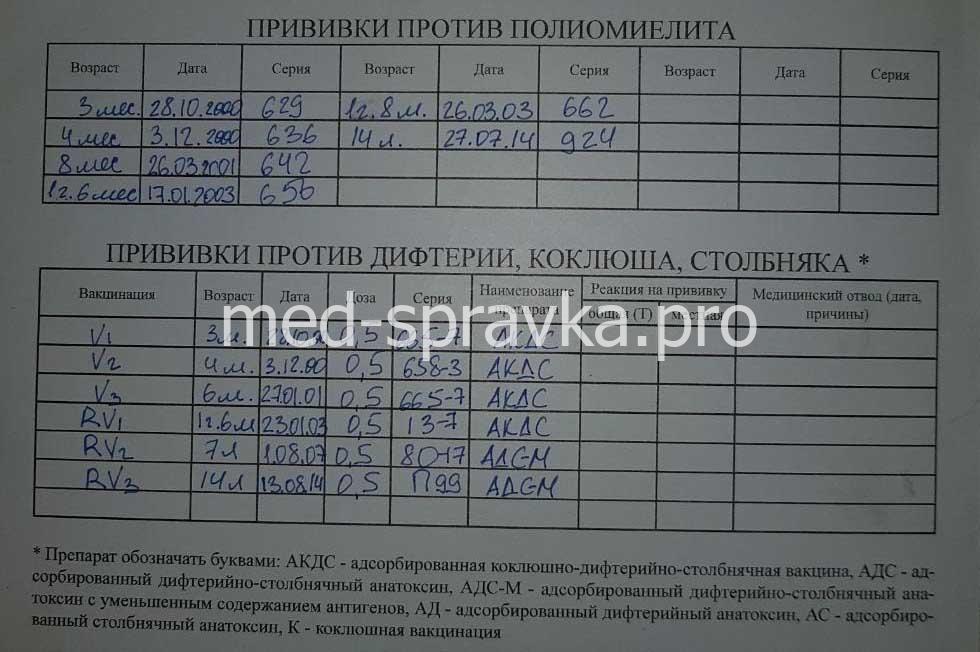 ПРИВИВКИ ПРОТИВ ПОЛИОМИЕЛИТА
Возраст Дата Серия Возраст Дата Серия Возраст Дата Серия
3 мес. 28.10.2000 629 1г. 8 м. 26.03.03 662
4 мес 3.12.2000 636 14 л. 27.07.14 924
8 мес 26.03.2001 642
1г. 6 мес 17.01.2003 656
ПРИВИВКИ ПРОТИВ ДИФТЕРИИ, КОКЛЮША, СТОЛБНЯКА *
Вакцинация Возраст Дата Доза Серия Наименование препарата Реакция на прививку Медицинский отвод (дата, причины)
общая (Т) местная
med-spravka.pro
V1 3м. 0,5 АКДС
V2 4м. 3.12.00 0,5 658-3 АКДС
V3 6м. 27.01.01 0,5 665-7 АКДС
RV1 1г. 6м 23.01.03 0,5 13-7 АКДС
RV2 7л 1.08.07 0,5 80-17 АДС-М
RV3 14л 13.08.14 0,5 П99 АДС-М
* Препарат обозначать буквами: АКДС - адсорбированная коклюшно-дифтерийно-столбнячная вакцина, АДС - ад-
сорбированный дифтерийно-столбнячный анатоксин, АДС-М - адсорбированный дифтерийно-столбнячный ана-
токсин с уменьшенным содержанием антигенов, АД - адсорбированный дифтерийный анатоксин, АС - адсорбиро-
ванный столбнячный анатоксин, К - коклюшная вакцинация